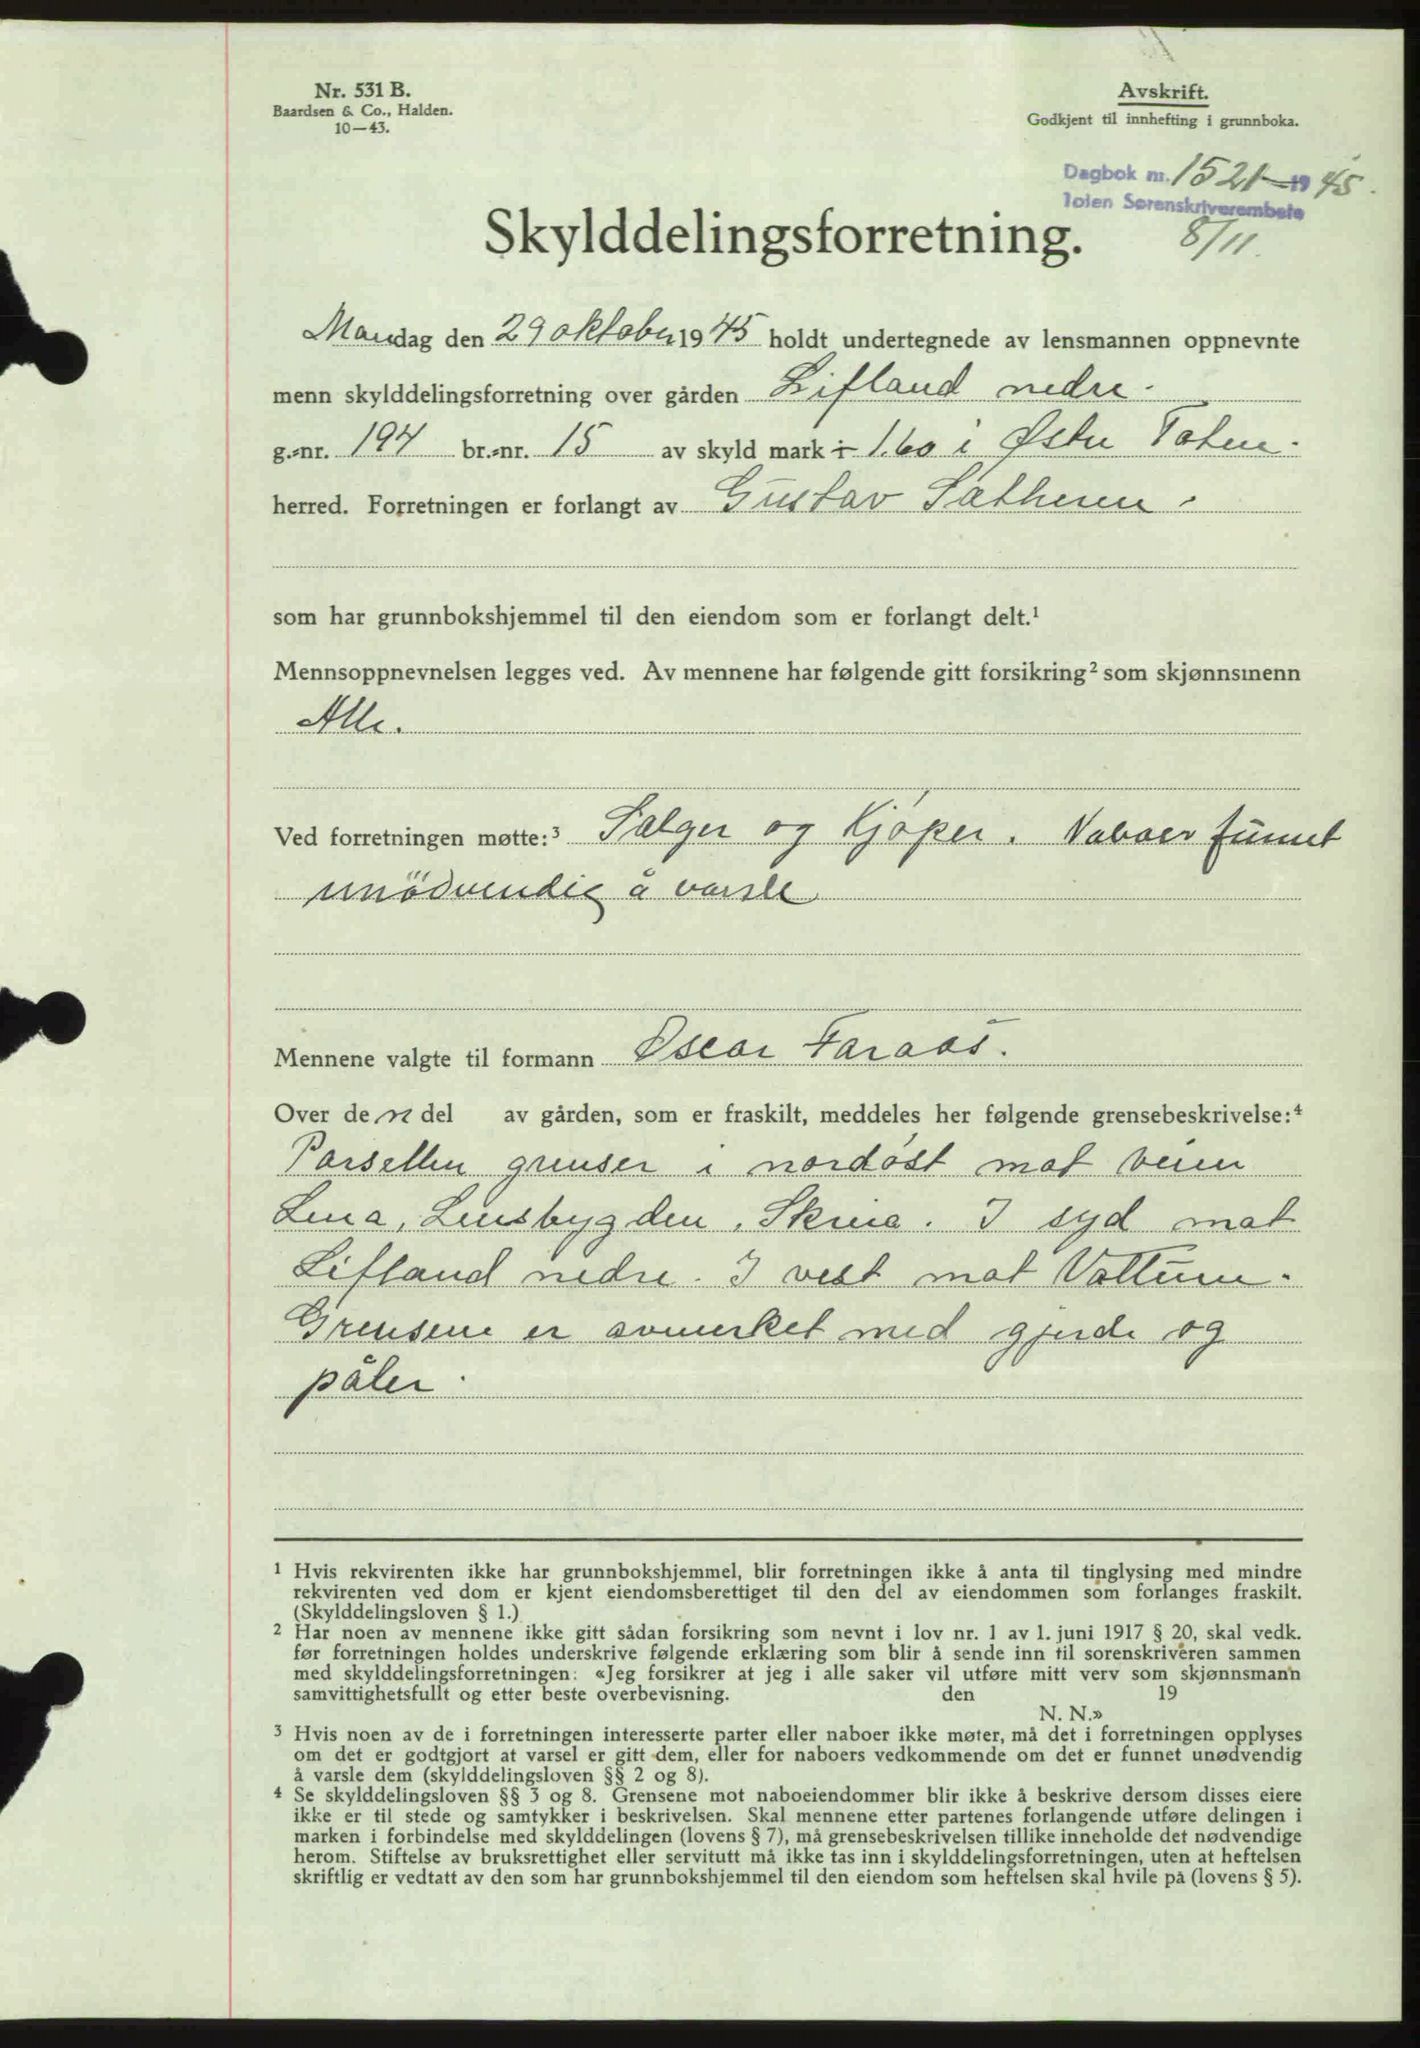 Nr. 531 B.
Baardsen & Co., Halden.
10—43.
Avskrift.
Godkjent til innhefting i grunnboka.
Dagbok nr. 1521–1945.
Toten Sorenskriverembete
8/11.
Skylddelingsforretning.
Mandag den 29 oktober 1945 holdt undertegnede av lensmannen oppnevnte
menn skylddelingsforretning over gården Lifland nedre.
g.-nr. 194 br.-nr. 15 av skyld mark 1.60 i Østre Toten.
herred. Forretningen er forlangt av Gustav Sætheren.
som har grunnbokshjemmel til den eiendom som er forlangt delt.¹
Mennsoppnevnelsen legges ved. Av mennene har følgende gitt forsikring² som skjønnsmenn
Alle.
Ved forretningen møtte:³ Sælger og Kjøper. Naboer funnet
unödvendig å varsle
Mennene valgte til formann Oscar Faraas.
Over den del av gården, som er fraskilt, meddeles her følgende grensebeskrivelse:⁴
Parsellen grenser i nordøst mot veien
Lena, Lensbygden, Skreia. I syd mot
Lifland nedre. I vest mot Vattum.
Grensene er avmerket med gjerde og
påler.
¹ Hvis rekvirenten ikke har grunnbokshjemmel, blir forretningen ikke å anta til tinglysing med mindre
rekvirenten ved dom er kjent eiendomsberettiget til den del av eiendommen som forlanges fraskilt.
(Skylddelingsloven § 1.)
² Har noen av mennene ikke gitt sådan forsikring som nevnt i lov nr. 1 av 1. juni 1917 § 20, skal vedk.
før forretningen holdes underskrive følgende erklæring som blir å sende inn til sorenskriveren sammen
med skylddelingsforretningen: «Jeg forsikrer at jeg i alle saker vil utføre mitt verv som skjønnsmann
samvittighetsfullt og etter beste overbevisning. den 19
N. N.»
³ Hvis noen av de i forretningen interesserte parter eller naboer ikke møter, må det i forretningen opplyses
om det er godtgjort at varsel er gitt dem, eller for naboers vedkommende om det er funnet unødvendig
å varsle dem (skylddelingsloven §§ 2 og 8).
⁴ Se skylddelingsloven §§ 3 og 8. Grensene mot naboeiendommer blir ikke å beskrive dersom disses eiere
ikke er til stede og samtykker i beskrivelsen. Skal mennene etter partenes forlangende utføre delingen i
marken i forbindelse med skylddelingen (lovens § 7), må grensebeskrivelsen tillike inneholde det nødvendige
herom. Stiftelse av bruksrettighet eller servitutt må ikke tas inn i skylddelingsforretningen, uten at heftelsen
skriftlig er vedtatt av den som har grunnbokshjemmel til den eiendom som heftelsen skal hvile på (lovens § 5).